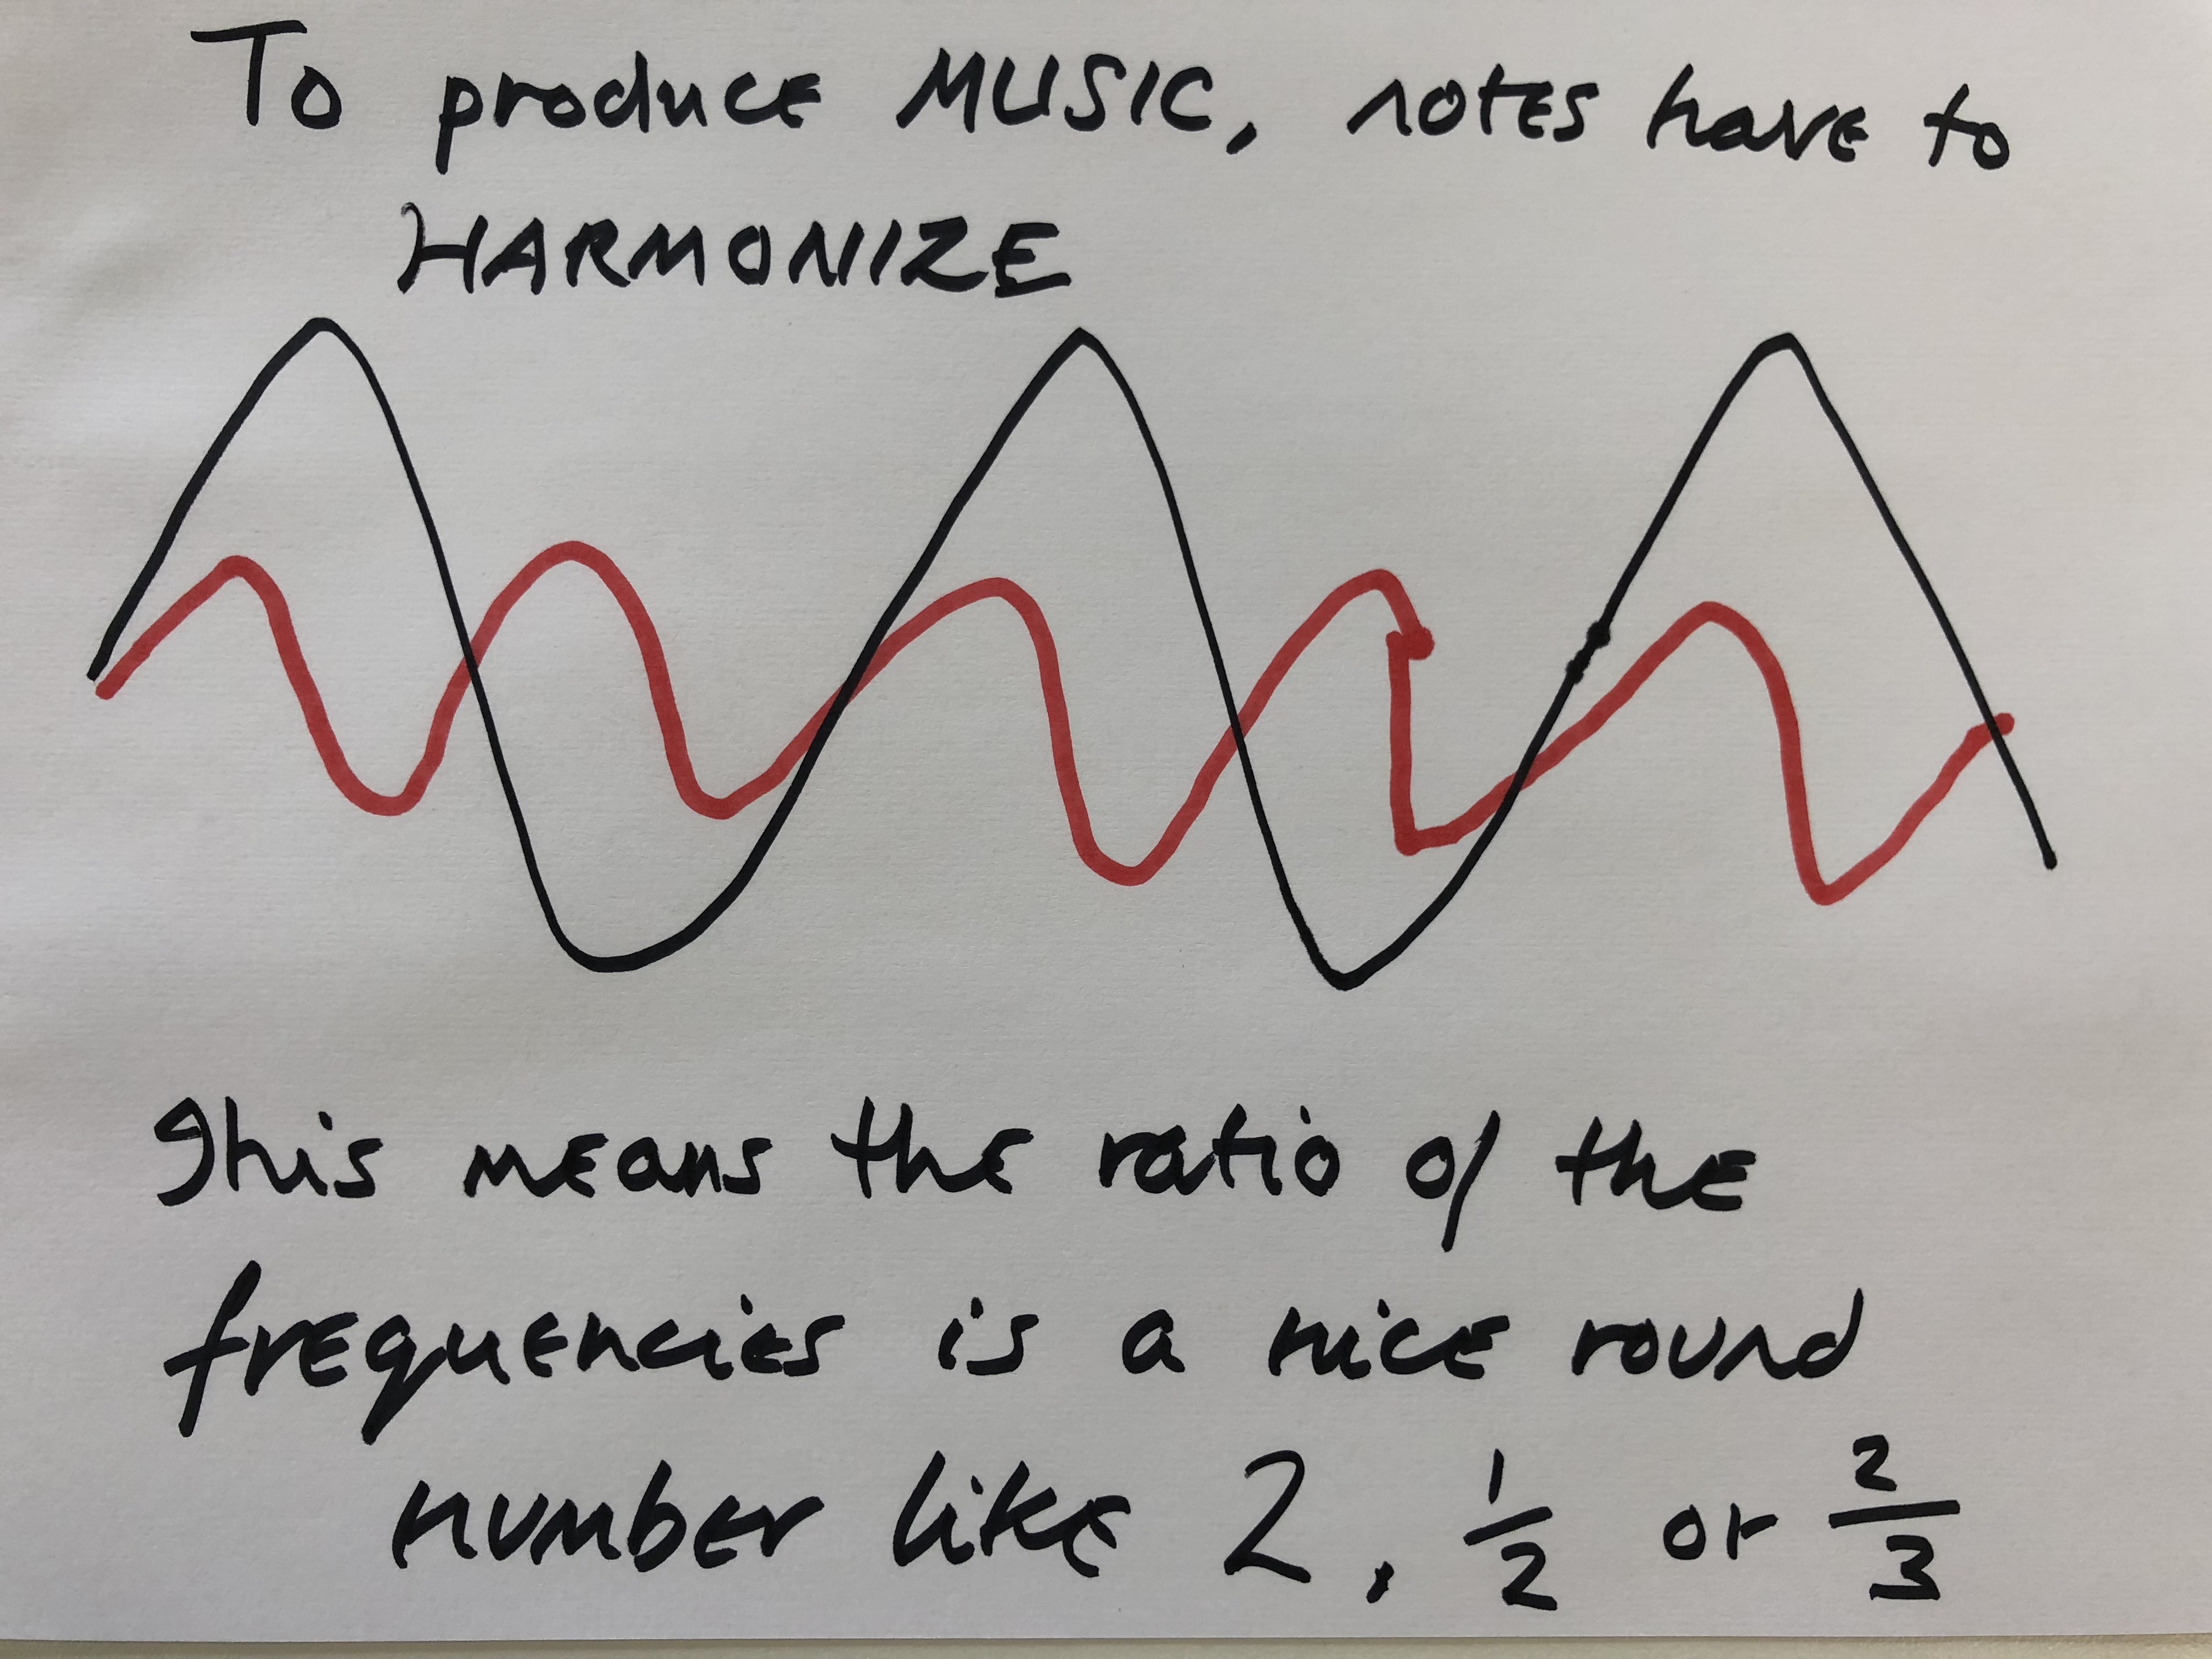 To produce MUSIC, notes have to
HARMONIZE
This means the ratio of the
frequencies is a nice round
number like 2, 1/2 or 2/3